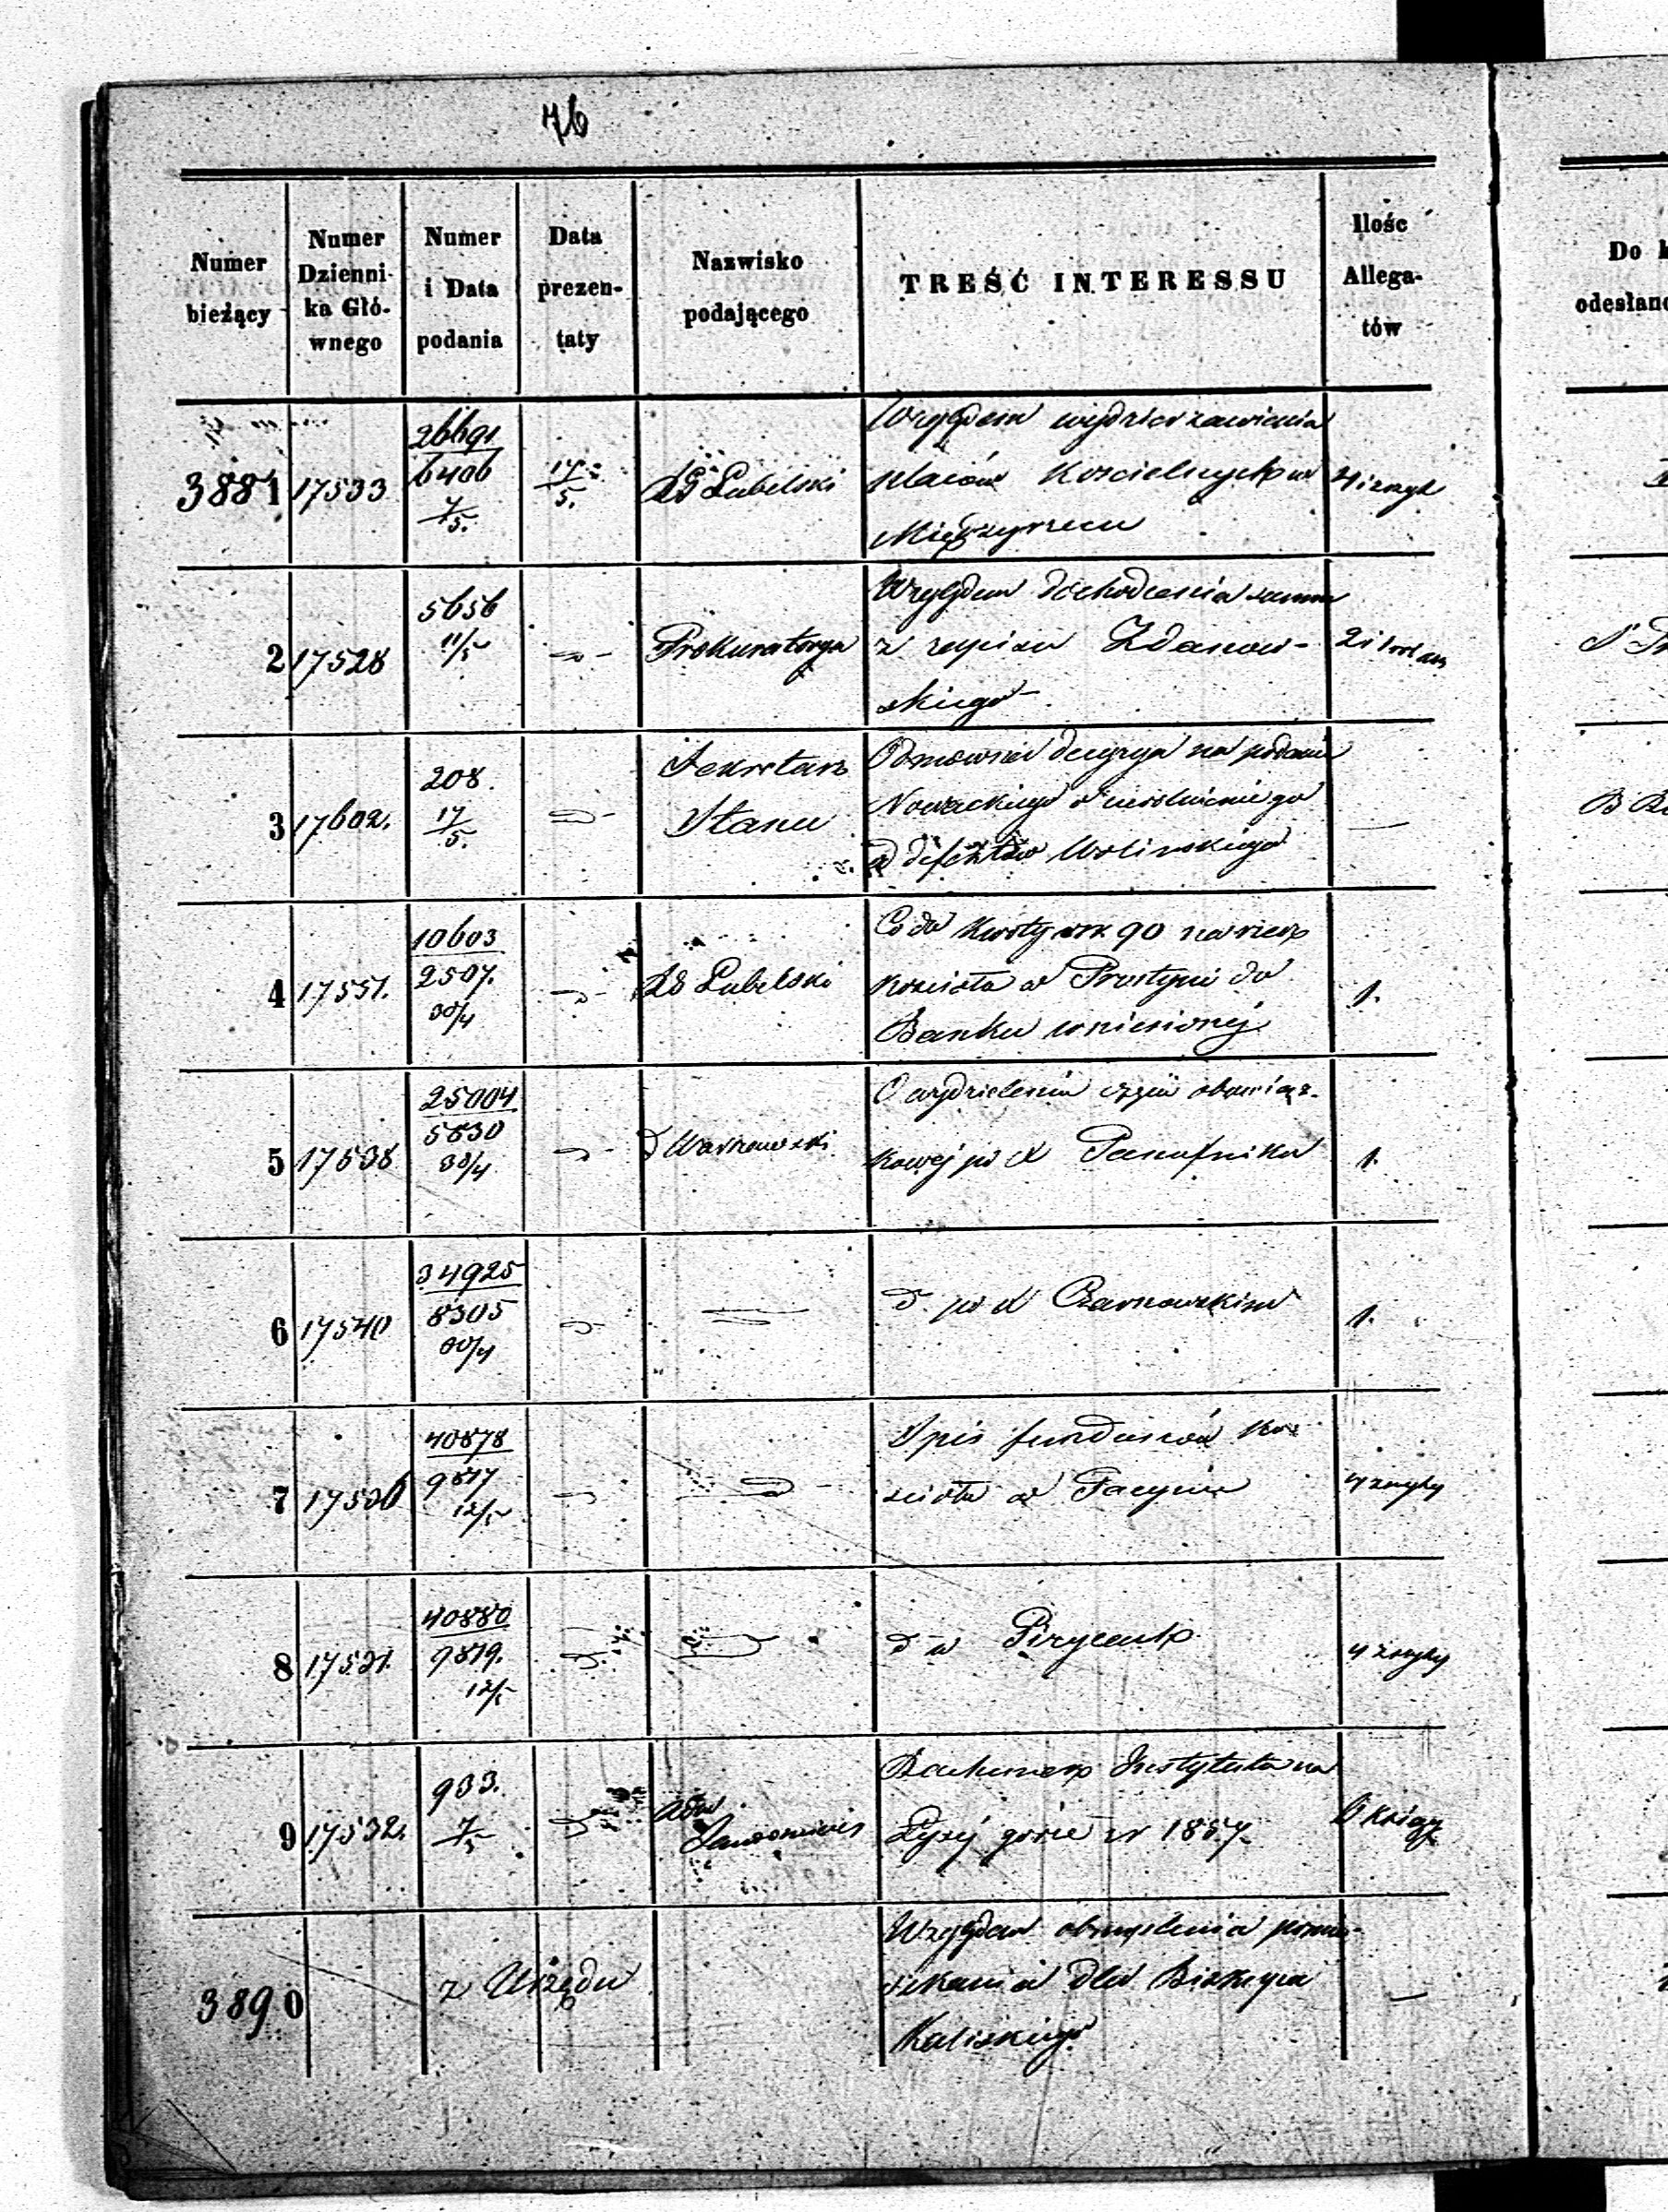 76
Numer bieżący
Numer Dzienni- ka Głó- wnego
Numer i Data podania
Data prezen- taty
Nazwisko podającego
TREŚĆ INTERESSU
Ilośc Allega- tów
Do
odesłano
3881 17533 26691 17
6406 5.
7
5.
Lubelski
Względem wydzierżawienia
placów Kościelnych w
Międzyrzecu
2 17528 5656
11/5
Prokuratorya
Względem dochodzenia summ
z zapisu Zdanow-
skiego
3 17602. 208.
17
5.
Sekretarz
Stanu
Odmowna decyzya na podanie
Nowackiego o uwolnienie go
od defektów Wolinskiego
—
4 17551. 10603
2507.
30/4
Lubelski
Co do Kwoty rsr 90 na rzecz
kościoła w Prostyni do
Banku wniesionej
1.
5 17538 25004
5830
30/4
Warszawski
O wydzieleniu części obowiąz-
kowej po X Panufniku
1.
6 17540 34925
8305
30/4
d. po X Czarnowskim
1.
7 17530 40878
9877
12/5
Spis funduszów ko-
ścioła w Pacynie
4 zszyty
8 17531. 40880
9879.
12/5
d w
4 zszyty
9 17532. 933.
7
5
Adw
Janoszewicz
Rachunek Instytuta na
Łysej górze zr 1857.
3890 z Urzędu
Względem obmyślenia pomie-
szkania dla Biskupa
Kaliskiego.
—